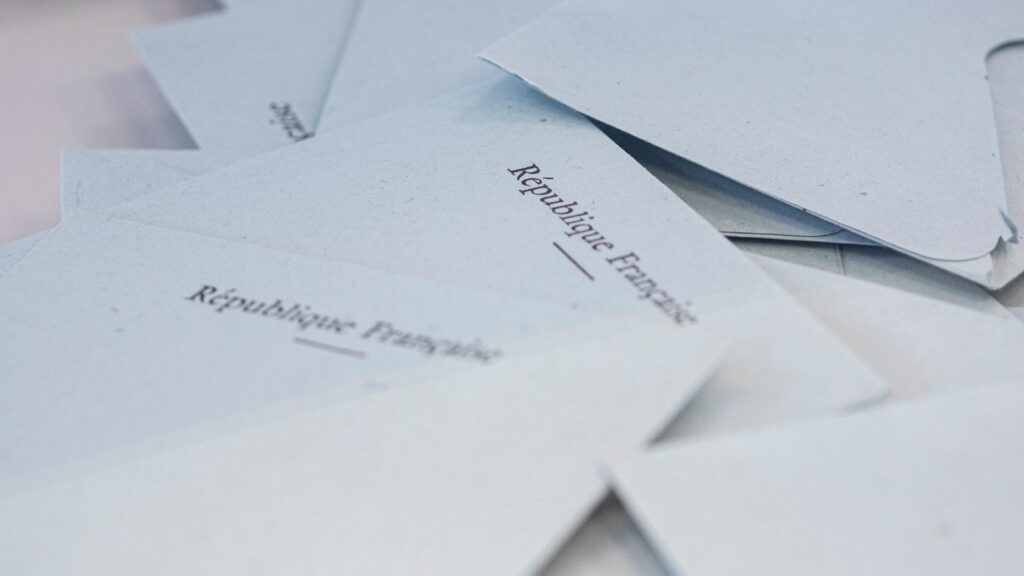 République Française
République Française